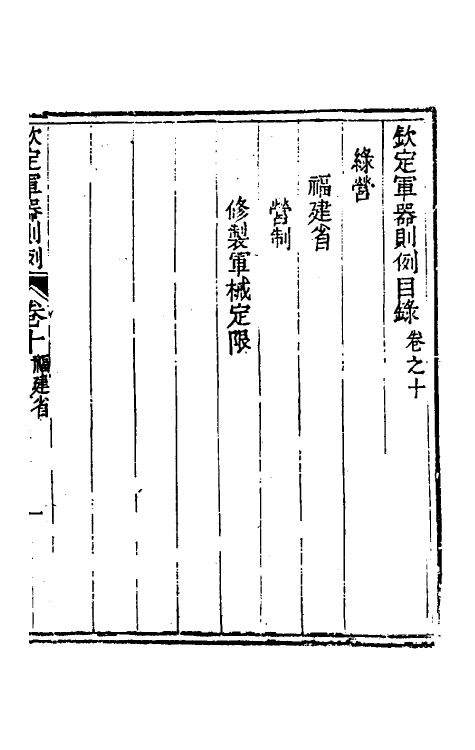 欽定軍器則例目錄 卷之十
綠營
福建省
營制
修製軍械定限
欽定軍器則例 卷十 福建省 一